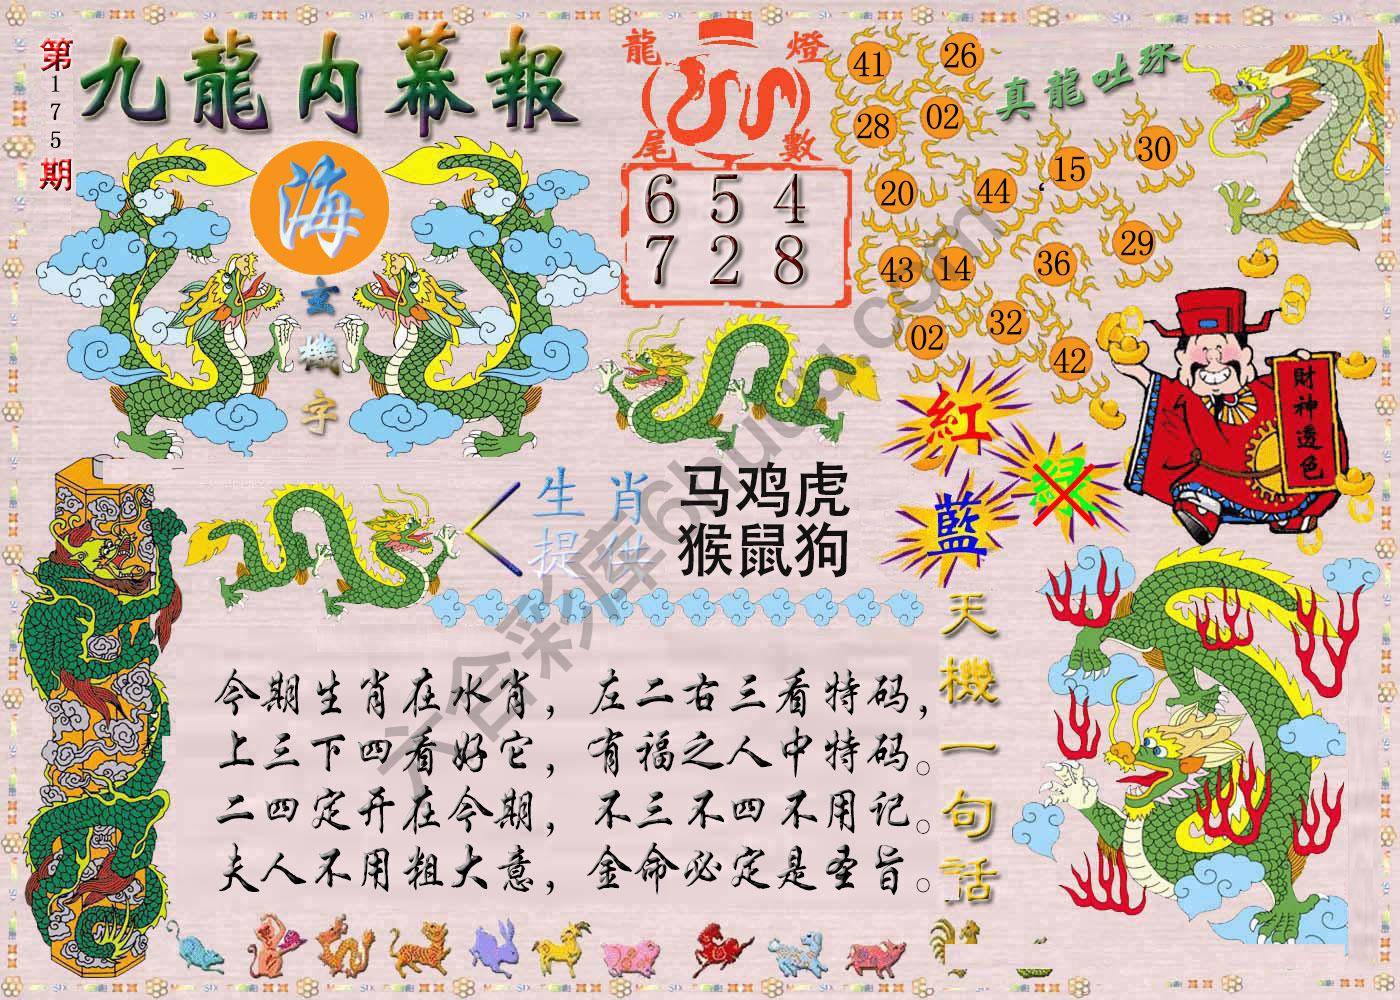 第175期
九龍内幕報
海
玄機字
龍燈
尾數
6 5 4
7 2 8
真龍吐珠
41 26
28 02
15 30
20 44
29
43 14 36
02 32
42
財神透色
紅
綠
藍
生肖
提供
马鸡虎
猴鼠狗
天機一句話
今期生肖在水肖，左二右三看特码，
上三下四看好它，有福之人中特码。
二四定开在今期，不三不四不用记。
夫人不用粗大意，金命必定是圣旨。
六合彩库6hudd.com